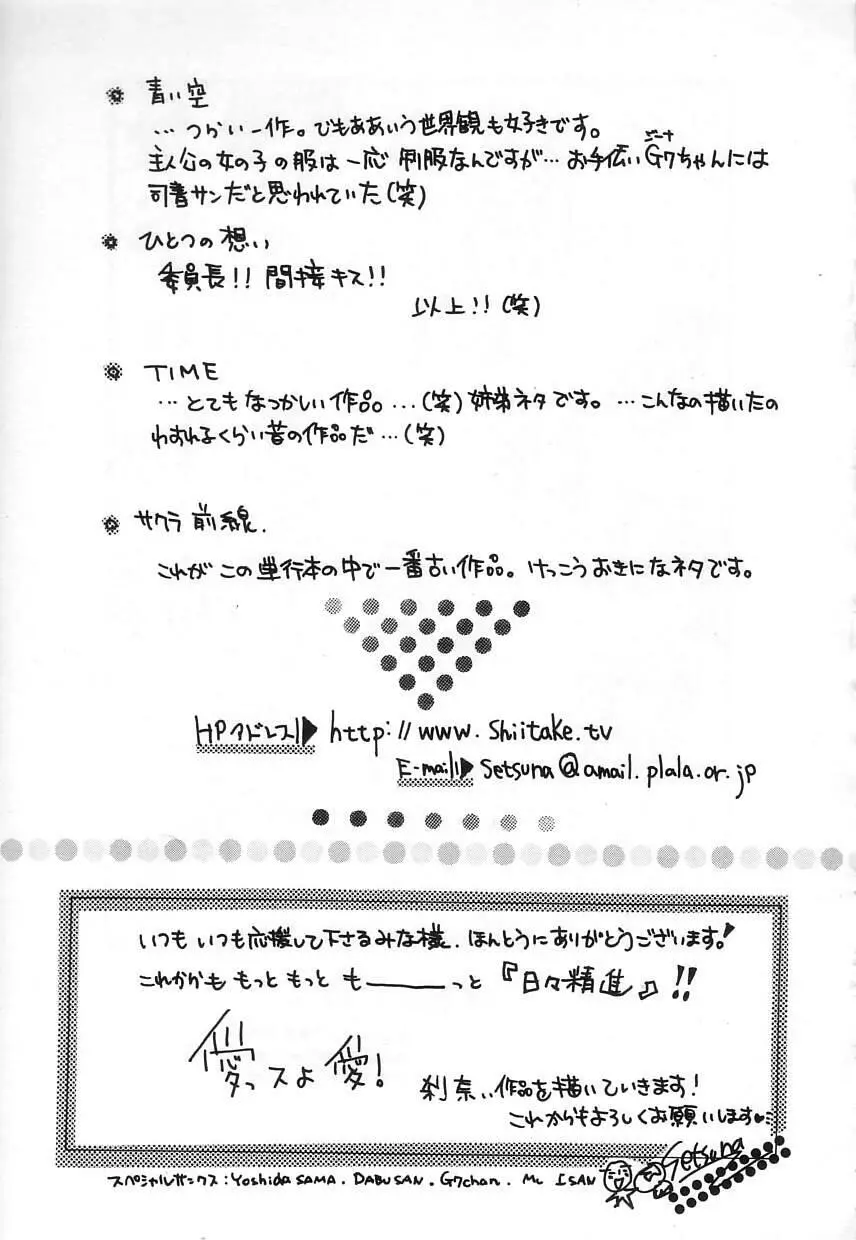 青い空
…つかい一作。でもああいう世界観も好きです。
ジーナ
主人公の女の子の服は一応 制服なんですが…お手伝いG7ちゃんには
司書サンだと思われていた(笑)
ひとつの想い
委員長!! 間接キス!!
以上!! (笑)
TIME
…とてもなつかしい作品…(笑)姉弟ネタです。…こんなの描いたの
わすれるくらい昔の作品だ…(笑)
サクラ前線.
これが この単行本の中で一番古い作品。けっこうおきになネタです。
HPアドレス http://www.Shiitake.tv
E-mail Setsuna@amail.plala.or.jp
いつも いつも応援して下さるみな様、ほんとうにありがとうございます!
これかかも もっと もっと も――っと『日々精進』!!
愛っスよ 愛!
刹奈、、作品を描いていきます!
これからもよろしくお願いします♥
Setsuna
スペシャルサンクス:Yoshida SAMA. DABUSAN. G7chan. Mc ISAN